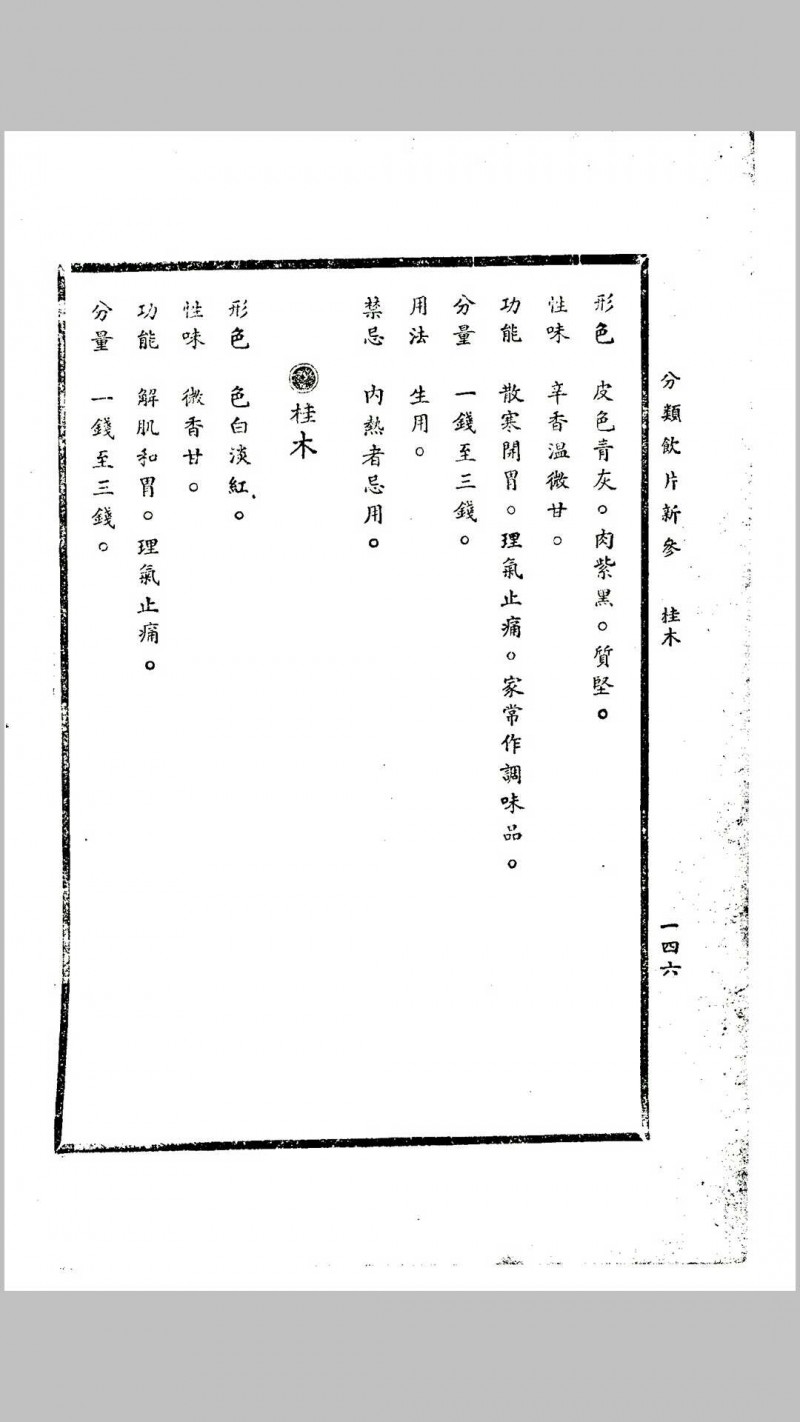 分類飲片新參　桂木　一四六
形色　皮色青灰。肉紫黑。質堅。
性味　辛香溫微甘。
功能　散寒開胃。理氣止痛。家常作調味品。
分量　一錢至三錢。
用法　生用。
禁忌　內熱者忌用。
桂木
形色　色白淡紅。
性味　微香甘。
功能　解肌和胃。理氣止痛。
分量　一錢至三錢。